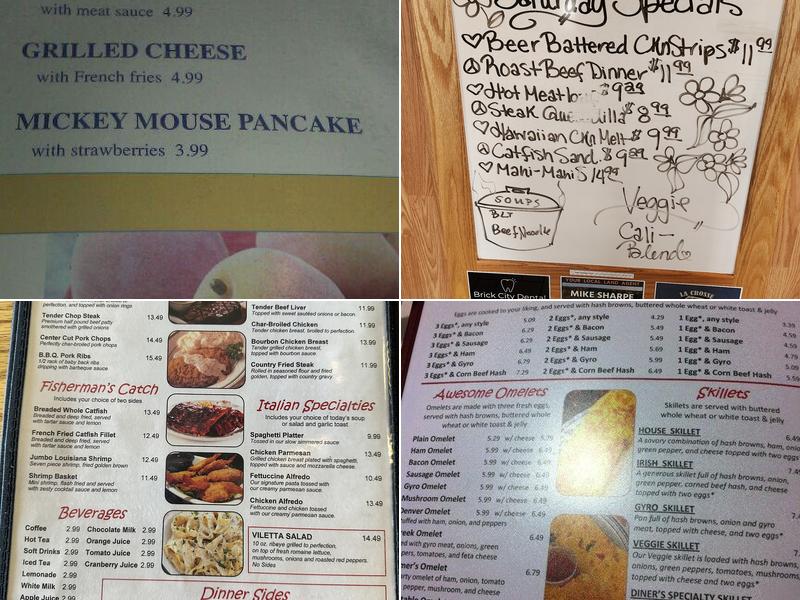 with meat sauce 4.99
GRILLED CHEESE
with French fries 4.99
MICKEY MOUSE PANCAKE
with strawberries 3.99
Saturday Specials
Beer Battered Ckn Strips $11.99
Roast Beef Dinner $11.99
Hot Meat $9.99
Steak $8.99
Hawaiian Ckn Melt $9.99
Catfish Sand. $9.99
Mahi-Mahi $14.99
SOUPS
BLT
Beef Noodle
Veggie
Cali-
Blend
Brick City Dental
YOUR LOCAL LAND AGENT
MIKE SHARPE
LA CROSSE
perfection, and topped with onion rings
Tender Chop Steak 13.49
Premium half pound beef patty
smothered with grilled onions
Center Cut Pork Chops 14.49
Perfectly char-broiled pork chops
B.B.Q. Pork Ribs 15.49
1/2 rack of baby back ribs
dripping with barbeque sauce
Fisherman's Catch
Includes your choice of two sides
Breaded Whole Catfish 13.49
Breaded and deep fried, served
with tartar sauce and lemon
French Fried Catfish Fillet 12.49
Breaded and deep fried, served
with tartar sauce and lemon
Jumbo Louisiana Shrimp 12.49
Seven piece shrimp, fried golden brown
Shrimp Basket 11.49
Mini shrimp, flash fried and served
with zesty cocktail sauce and lemon
Beverages
Coffee 2.99 Chocolate Milk 2.99
Hot Tea 2.99 Orange Juice 2.99
Soft Drinks 2.99 Tomato Juice 2.99
Iced Tea 2.99 Cranberry Juice 2.99
Lemonade 2.99
White Milk 2.99
Apple Juice 2.99
Tender Beef Liver 11.99
Topped with sweet sautéed onions or bacon.
Char-Broiled Chicken 11.99
Tender chicken breast, broiled to perfection.
Bourbon Chicken Breast 13.99
Tender grilled chicken breast,
topped with bourbon sauce.
Country Fried Steak 11.99
Rolled in seasoned flour and fried
golden, topped with country gravy.
Italian Specialties
Includes your choice of today's soup
or salad and garlic toast
Spaghetti Platter 9.99
Tossed in our slow simmered sauce
Chicken Parmesan 13.49
Grilled chicken breast plated with spaghetti,
topped with sauce and mozzarella cheese.
Fettuccine Alfredo 10.49
Our signature pasta tossed with
our creamy parmesan sauce.
Chicken Alfredo 13.49
Fettuccine and chicken tossed
with our creamy parmesan sauce.
VILETTA SALAD 14.49
10 oz. ribeye grilled to perfection,
on top of fresh romaine lettuce,
mushrooms, onions and roasted red peppers.
No Sides
Dinner Sides
Eggs are cooked to your liking, and served with hash browns, buttered whole wheat or white toast & jelly
3 Eggs*, any style 5.09 2 Eggs*, any style 4.29 1 Egg*, any style 3.39
3 Eggs* & Bacon 6.29 2 Eggs* & Bacon 5.49 1 Egg* & Bacon 4.59
3 Eggs* & Sausage 6.29 2 Eggs* & Sausage 5.49 1 Egg* & Sausage 4.59
3 Eggs* & Ham 6.49 2 Eggs* & Ham 5.69 1 Egg* & Ham 4.79
3 Eggs* & Gyro 6.79 2 Eggs* & Gyro 5.99 1 Egg* & Gyro 5.09
3 Eggs* & Corn Beef Hash 7.29 2 Eggs* & Corn Beef Hash 6.49 1 Egg* & Corn Beef Hash 5.59
Awesome Omelets
Omelets are made with three fresh eggs,
served with hash browns, buttered whole
wheat or white toast & jelly
Plain Omelet 5.29 w/ cheese 5.79
Ham Omelet 5.99 w/ cheese 6.49
Bacon Omelet 5.99 w/ cheese 6.49
Sausage Omelet 5.99 w/ cheese 6.49
Gyro Omelet 5.99 w/ cheese 6.49
Mushroom Omelet 5.99 w/ cheese 6.49
Denver Omelet 5.99 w/ cheese 6.49
stuffed with ham, onion, and peppers
Greek Omelet 6.49
gyro meat, onions, green
peppers, tomatoes, and feta cheese
Omelet 6.79
omelet of ham, onion, tomato
pepper, mushroom, and cheese
Skillets
Skillets are served with buttered
whole wheat or white toast & jelly
HOUSE SKILLET 6.49
A savory combination of hash browns, ham, onion,
green pepper, and cheese topped with two eggs*
IRISH SKILLET
A generous skillet full of hash browns, onion,
green pepper, corned beef hash, and cheese
topped with two eggs*
GYRO SKILLET
Pan full of hash browns, onion and gyro
meat, topped with cheese, and two eggs*
VEGGIE SKILLET
Our Veggie skillet is loaded with hash browns,
onions, green peppers, tomatoes, mushrooms,
topped with cheese and two eggs*
DINER'S SPECIALTY SKILLET